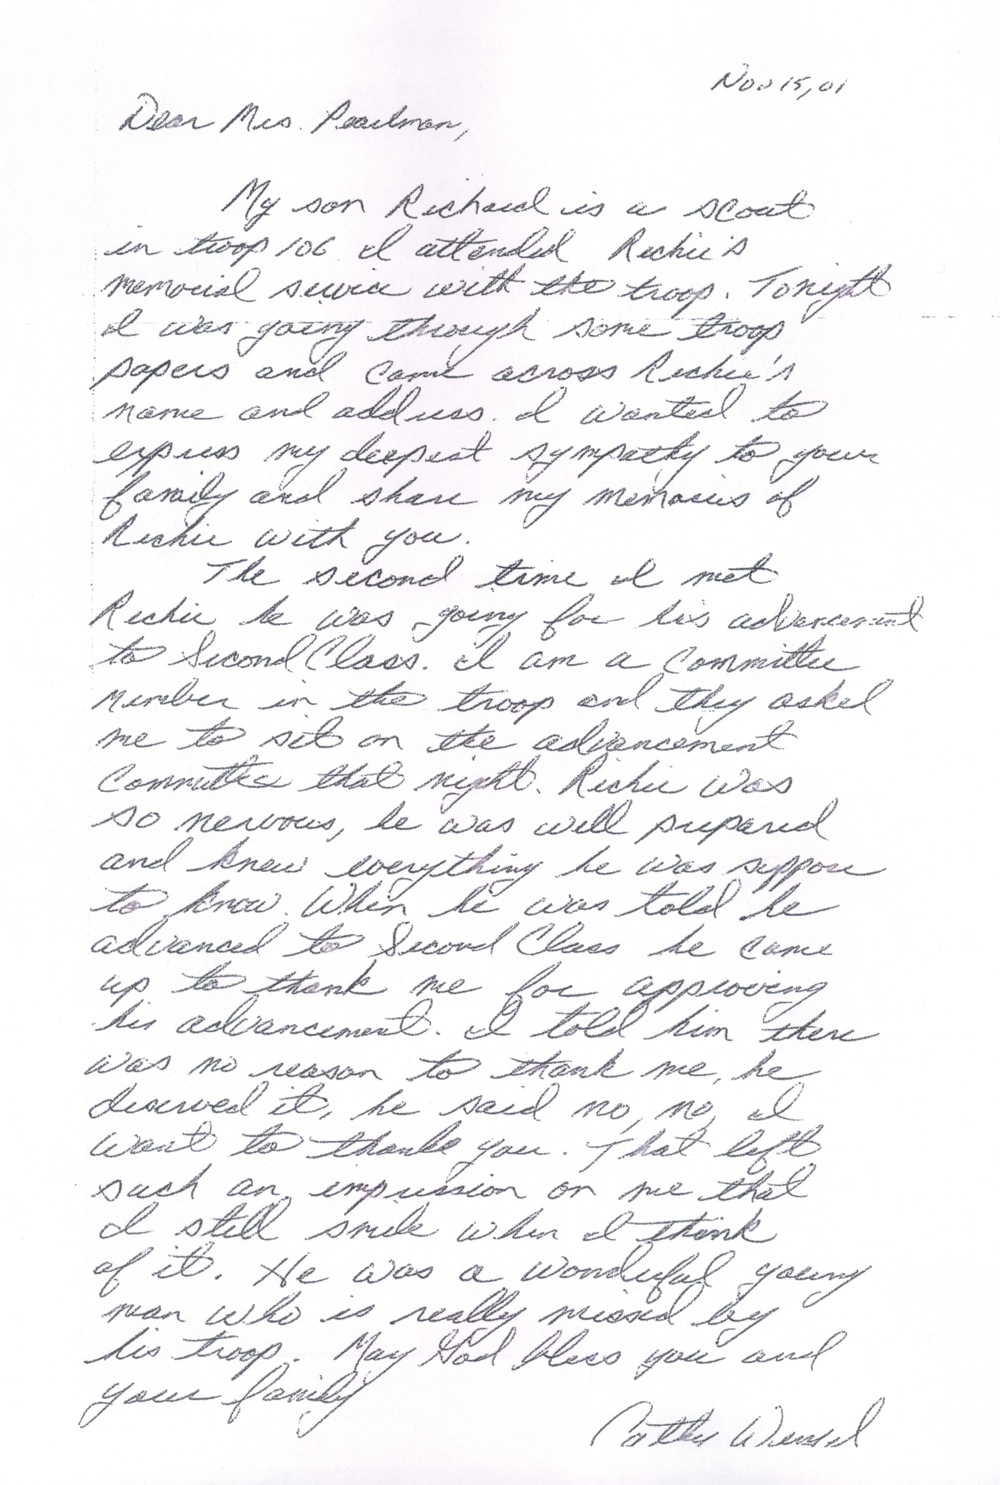 Nov 15, 01
Dear Mrs. Pearlman,
My son Richard is a scout
in troop 106 I attended Richie's
memorial service with the troop. Tonight
I was going through some troop
papers and came across Richie's
name and address. I wanted to
express my deepest sympathy to your
family and share my memories of
Richie with you.
The second time I met
Richie he was going for his advancement
to Second Class. I am a Committee
member in the troop and they asked
me to sit on the advancement
committee that night. Richie was
so nervous, he was well prepared
and knew everything he was suppose
to know. When he was told he
advanced to Second Class he came
up to thank me for approving
his advancement. I told him there
was no reason to thank me, he
deserved it, he said no, no, I
want to thank you. That left
such an impression on me that
I still smile when I think
of it. He was a wonderful young
man who is really missed by
his troop. May God bless you and
your family
Cathy